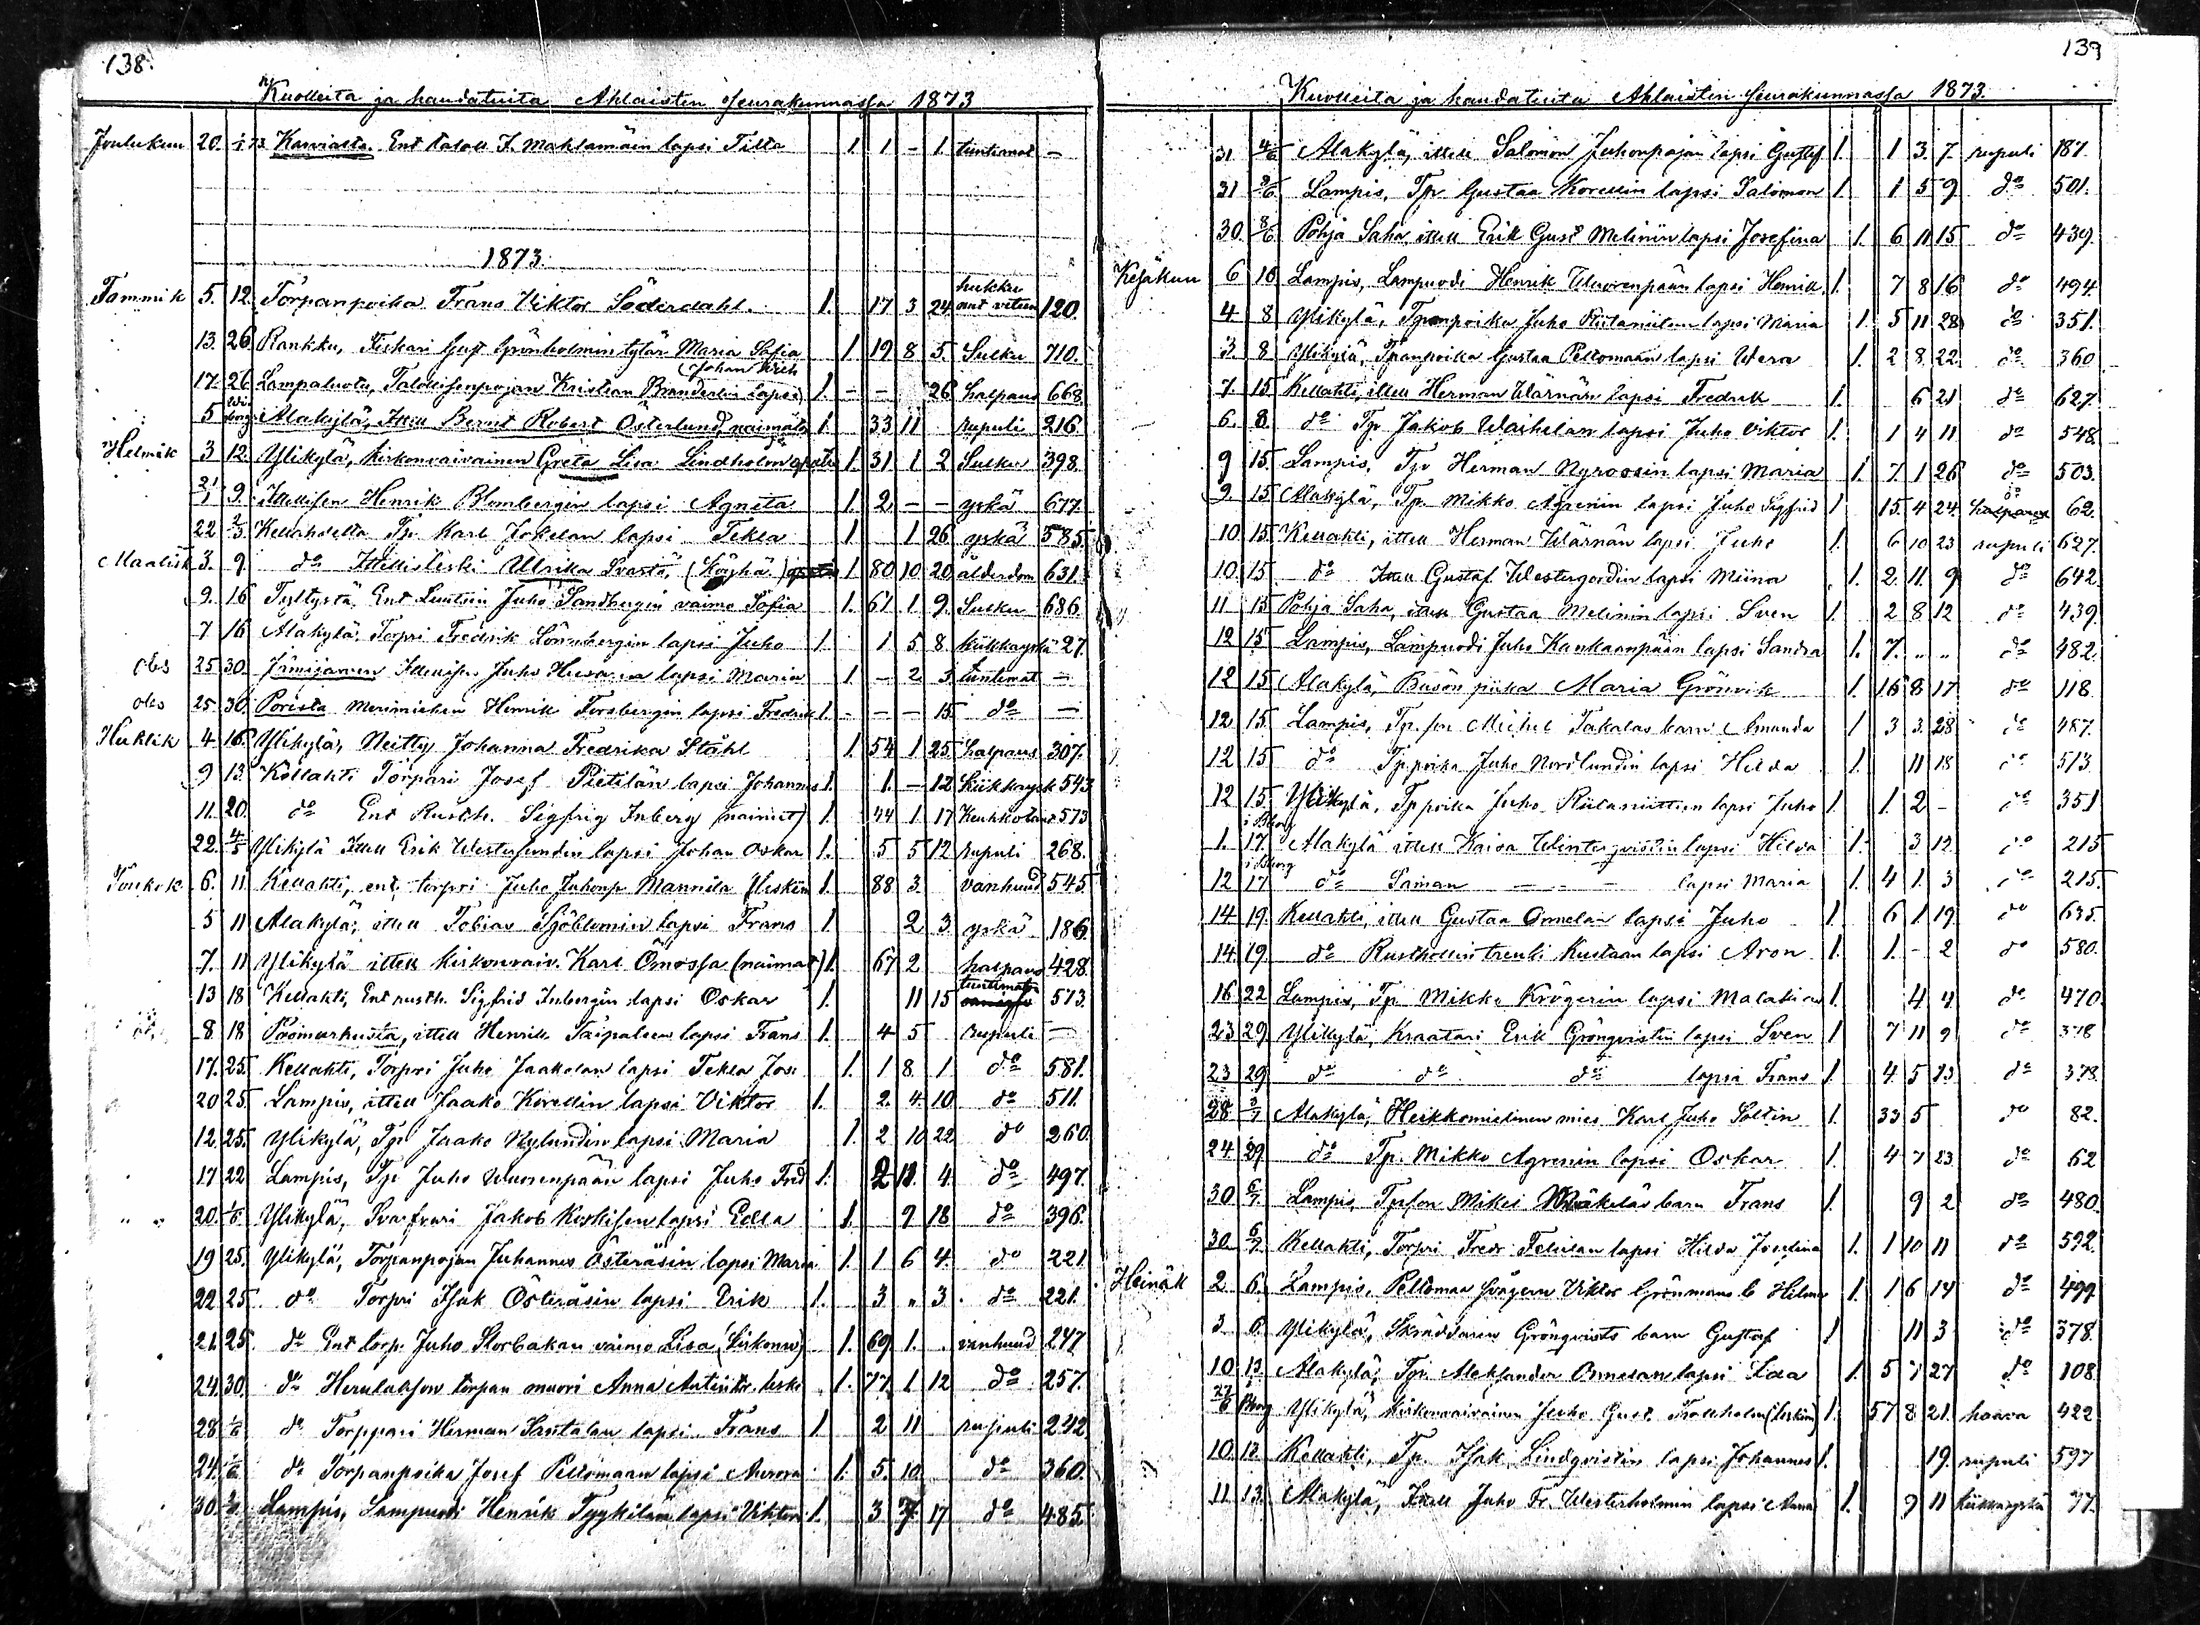 138.
Kuolleita ja haudatuita Ahlaisten seurakunnassa 1873
Joulukuu 20. Karviasta. Ent talon lapsi 1. 1 – 1. tuntemat –
1873.
Tammik 5. 12. Törpanpoika Frans Viktor Söderdahl. 1. 17 3 24 hukku 120.
13. 26 Rankku, Gust Grönholmin tytär Maria Sofia 1 19 8 5. Suku 710.
(Johan Erich
17. 26 Lampaluoto, Talollisenpojan Kristian Branderin lapsi 1. – – 26 halpaus 668.
5 Alakylä, Ittell Bernt Robert Österlund, naimätön 1. 33 11 rupuli 216.
Helmik 3 12. Ylikylä, kirkonvaivainen Greta Lisa Lindholm 1 31 1 2 Suku 398.
21/1 9. Ittellisen Henrik Blombergin lapsi Agneta 1 2 – – yskä 677.
22 2/3 Kellahdelta Tp. Karl Jokelan lapsi Tekla 1 1 26 yskä 585.
Maalisk 3. 9. do Ittellisleski Ulrika Svartä, 1 80 10 20 ålderdom 631.
9. 16 Ent Juho Sandbergin vaimo Sofia 1. 61 1 9. Suku 686.
7 16 Alakylä, Torpri Fredrik Lönnbergin lapsi Juho 1. 1 5 8 kiikkayskä 27.
obs 25 30. Jämijärven Ittellisen Juho lapsi Maria 1. – 2 3. tuntemat –
obs 25 30. Porista Merimiehen Henrik Forsbergin lapsi Fredrik 1. – – 15 do –
Huhtik 4 16. Ylikylä, Neitty Johanna Fredrika Ståhl 1. 54 1 25 halpaus 307.
9 13. Kellahti Torpari Josef Pietilän lapsi Johannes 1. 1. – 12 kiikkaysk 543
11. 20. do Ent Rusth. Sigfrig Inberg (nainut) 1. 44 1 17 Keuhkotaut 573
22. 4/5 Ylikylä Ittell Erik Westerlundin lapsi Johan Oskar 1. 5 5 12 rupuli 268.
Toukok 6. 11 Kellahti, ent. torpri Juho Juhonp Mannila (leskim) 1. 88 3. vanhuud 545.
5 11 Alakylä, ittell Tobias Sjöblomin lapsi Frans 1. 2 3 yskä 186.
7. 11 Ylikylä ittell kirkonvaiv. Karl Ömossa (naimat) 1. 67 2 halpaus 428.
13 18 Kellahti, Ent rusth. Sigfrid Inbergin lapsi Oskar 1. 11 15 tuntematon 573.
8 18 Poomarkusta, ittell Henrik Taipaleen lapsi Frans 1. 4 5 rupuli –
17. 25. Kellahti, Torpri Juho Jaakolan lapsi Tekla Jos. 1. 1 8. 1 do 581.
20 25 Lampis, ittell Jaako Korellin lapsi Viktor 1. 2. 4. 10 do 511.
12. 25. Ylikylä, Tpr Jaako Nylundin lapsi Maria 1. 2 10 22 do 260.
17 22 Lampis, Tpr Juho Wuorenpään lapsi Juho Fred 1. 2 11. 4. do 497.
" " 20. 1/6. Ylikylä, Jakob Koskisen lapsi Edla 1. 9 18 do 396.
19 25. Ylikylä, Torpanpojan Juhannes Österåsin lapsi Maria 1. 1 6 4. do 221.
22 25. do Torpri Isak Österåsin lapsi Erik 1. 3 " 3. do 221.
21. 25. do Ent torp. Juho Storbakan vaimo Lisa (kirkonv) 1. 69 1. . vanhuud 247
24. 30. do torpan muori Anna lesk 1. 77. 1 12 do 257.
28 1/6 do Torppari Herman Santalan lapsi Frans 1 2 11 rupuli 242
24. 1/6 do Torpanpoika Josef Peltomaan lapsi Aurora 1. 5. 10. do 360.
30. Lampis, Lampuodi Henrik Tyykilän lapsi Viktor 1. 3 7 17 do 485.
139
Kuolleita ja haudatuita Ahlaisten seurakunnassa 1873.
31 4/6 Alakylä, ittell Salomon Juhonpojan lapsi Gustaf 1. 1 3. 7. rupuli 187.
31 Lampis, Tpr Gustaa Korellin lapsi Salomon 1. 1 5 9 do 501.
30. 8/6 Pohja Saha, ittell Erik Gust Melinin lapsi Josefina 1. 6 11 15 do 439.
Kesäkuu 6 10 Lampis, Lampuodi Henrik Wuorenpään lapsi Henrik 1. 7 8 16 do 494.
4 8 Ylikylä, Tpanpoika Juho Riitaniitun lapsi Maria 1. 5 11 28 do 351.
3. 8 Ylikylä, Tpanpoika Gustaa Peltomaan lapsi Wera 1. 2 8. 22. do 360
7. 15 Kellahti, ittell Herman Wärnän lapsi Fredrik 1. 6 21 do 627
6. 8. do Tpr Jakob lapsi Juho Viktor 1. 1 4 11 do 548.
9 15. Lampis, Tpr Herman Nyroosin lapsi Maria 1. 7. 1 26 do 503.
9. 15 Alakylä, Tp. Mikko Ågrenin lapsi Juho Sigfrid 1 15. 4 24. do 62.
10 15. Kellahti, ittell Herman Wärnän lapsi Juho 1. 6 10 23 rupuli 627.
10. 15 do Ittell Gustaf Westergordin lapsi Miina 1. 2. 11. 9 do 642.
11 15 Pohja Saha, ittell Gustaa Melinin lapsi Sven 1. 2 8 12 do 439.
12 15 Lampis, Lampuodi Juho Kankaanpään lapsi Sandra 1. 7. " " do 482.
12 15 Alakylä, Busön piika Maria Grönvik 1. 16 8 17 do 118
12. 15. Lampis, Tpr son Michel Takalas barn Amanda 1 3 3. 28 do 487.
12 15 do Tp.poika Juho Nordlundin lapsi Hilda 1. 11 18 do 513
12 15. Ylikylä, Tppoika Juho Riitaniittun lapsi Juho 1. 1. 2 – do 351
1. 17. Alakylä ittell Kaisa Winterqvistin lapsi Hilda 1. 3 12 do 215
12 17 do Saman – – – lapsi Maria 1. 4 1. 3 do 215.
14 19. Kellahti, ittell Gustaa Onnelan lapsi Juho 1. 6 1 19 do 635.
14. 19 do Rusthollin trenki Kustaan lapsi Aron 1. 1. – 2 do 580.
16 22 Lampis, Tp. Mikko Krögerin lapsi 1. 4 4 do 470.
23 29 Ylikylä, Kraatari Erik Grönqvistin lapsi Sven 1 7 11 9 do 378
23 29 do do do lapsi Frans 1. 4 5 13 do 378.
28 Alakylä, Heikkomielinen mies Karl Juho Soltin 1. 33 5 do 82.
24 29 do Tp. Mikko Agrenin lapsi Oskar 1. 4 7 23 do 62
30 6/7 Lampis, Tprson Mikel Mäkeläs barn Frans 1. 9 2 do 480.
30. 6/7 Kellahti, Torpri Fredr lapsi Hilda Josefina 1. 1 10 11 do 592.
Heinäk 2 6. Lampis, Peltomaa svågern Viktor Grönmans b Hilma 1. 1 6 14 do 499.
3 6. Ylikylä, Skräddaren Grönqvists barn Gustaf 1 11 3 do 378.
10 13. Alakylä, Tpr Aleksander Onnelan lapsi 1. 5 7 27 do 108
27/6 Ylikylä, kirkonvaivainen Juho Gust. (leskim) 1. 57 8 21. haava 422
10. 12 Kellahti, Tp. Isak Lindqvistin lapsi Johannes 1. 19. rupuli 597
11 13. Alakylä, Ittell Juho Fr. Westerholmin lapsi Anna 1. 9 11 kiikkayskä 77.